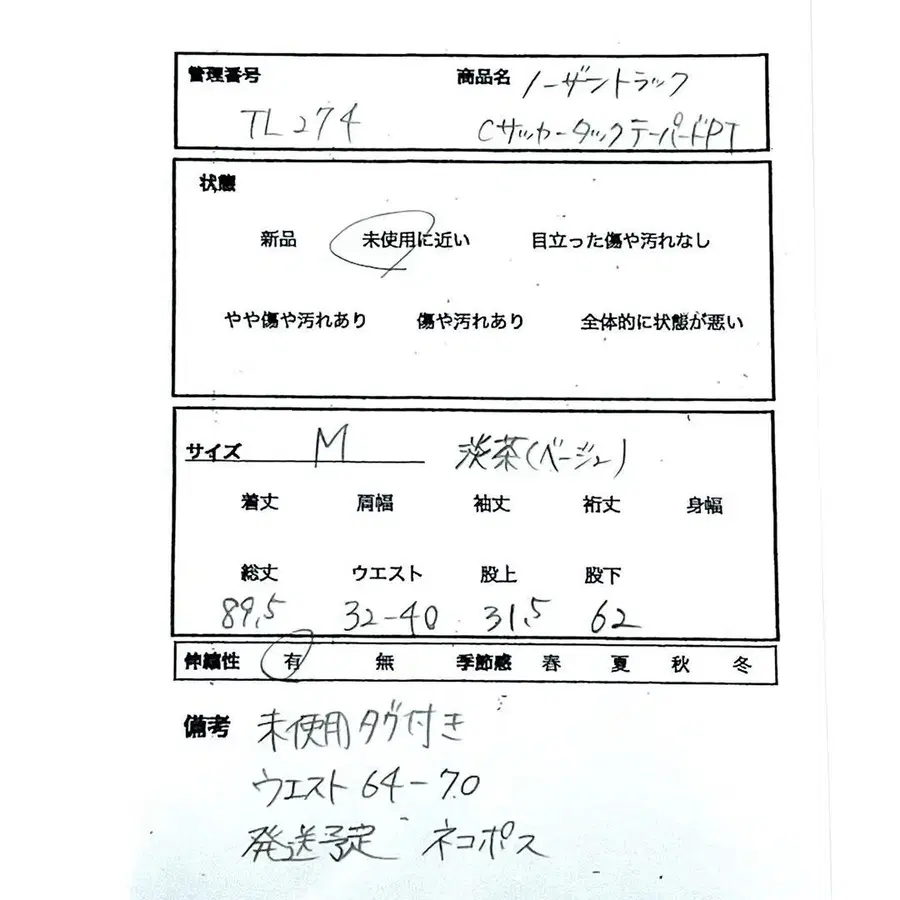 管理番号 商品名 ノーザントラック
TL274 CサッカータックテーパードPT
状態
新品 未使用に近い 目立った傷や汚れなし
やや傷や汚れあり 傷や汚れあり 全体的に状態が悪い
サイズ M 淡茶(ベージュ)
着丈 肩幅 袖丈 裄丈 身幅
総丈 ウエスト 股上 股下
89.5 32-40 31.5 62
伸縮性 有 無 季節感 春 夏 秋 冬
備考 未使用タグ付き
ウエスト 64-70
発送予定 ネコポス